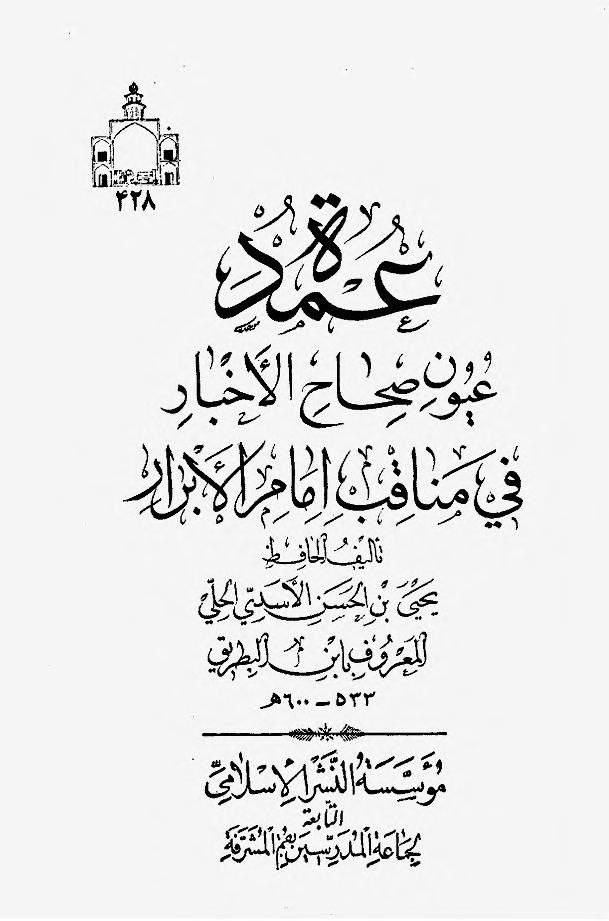 ٤٢٨
عُمدَة
عُيُونِ صِحَاحِ الأَخْبَارِ
فِي مَنَاقِبِ إِمَامِ الأَبْرَارِ
تَأليفُ الحَافِظ
يَحْيَى بْنِ الحَسَنِ الأَسَدِيِّ الحِلِّيِّ
المَعْرُوفِ بِابْنِ البِطْرِيقِ
٥٣٣ – ٦٠٠هـ
مُؤَسَّسَةُ النَّشْرِ الإِسْلَامِيِّ
التَّابِعَة
لِجَمَاعَةِ المُدَرِّسِينَ بِقُمَّ المُشَرَّفَةِ